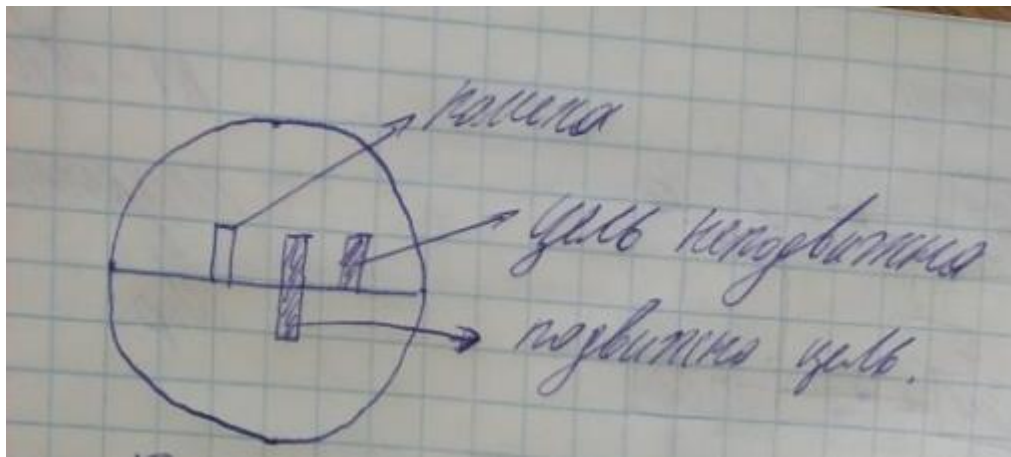 помеха
цель неподвижна
подвижна цель.